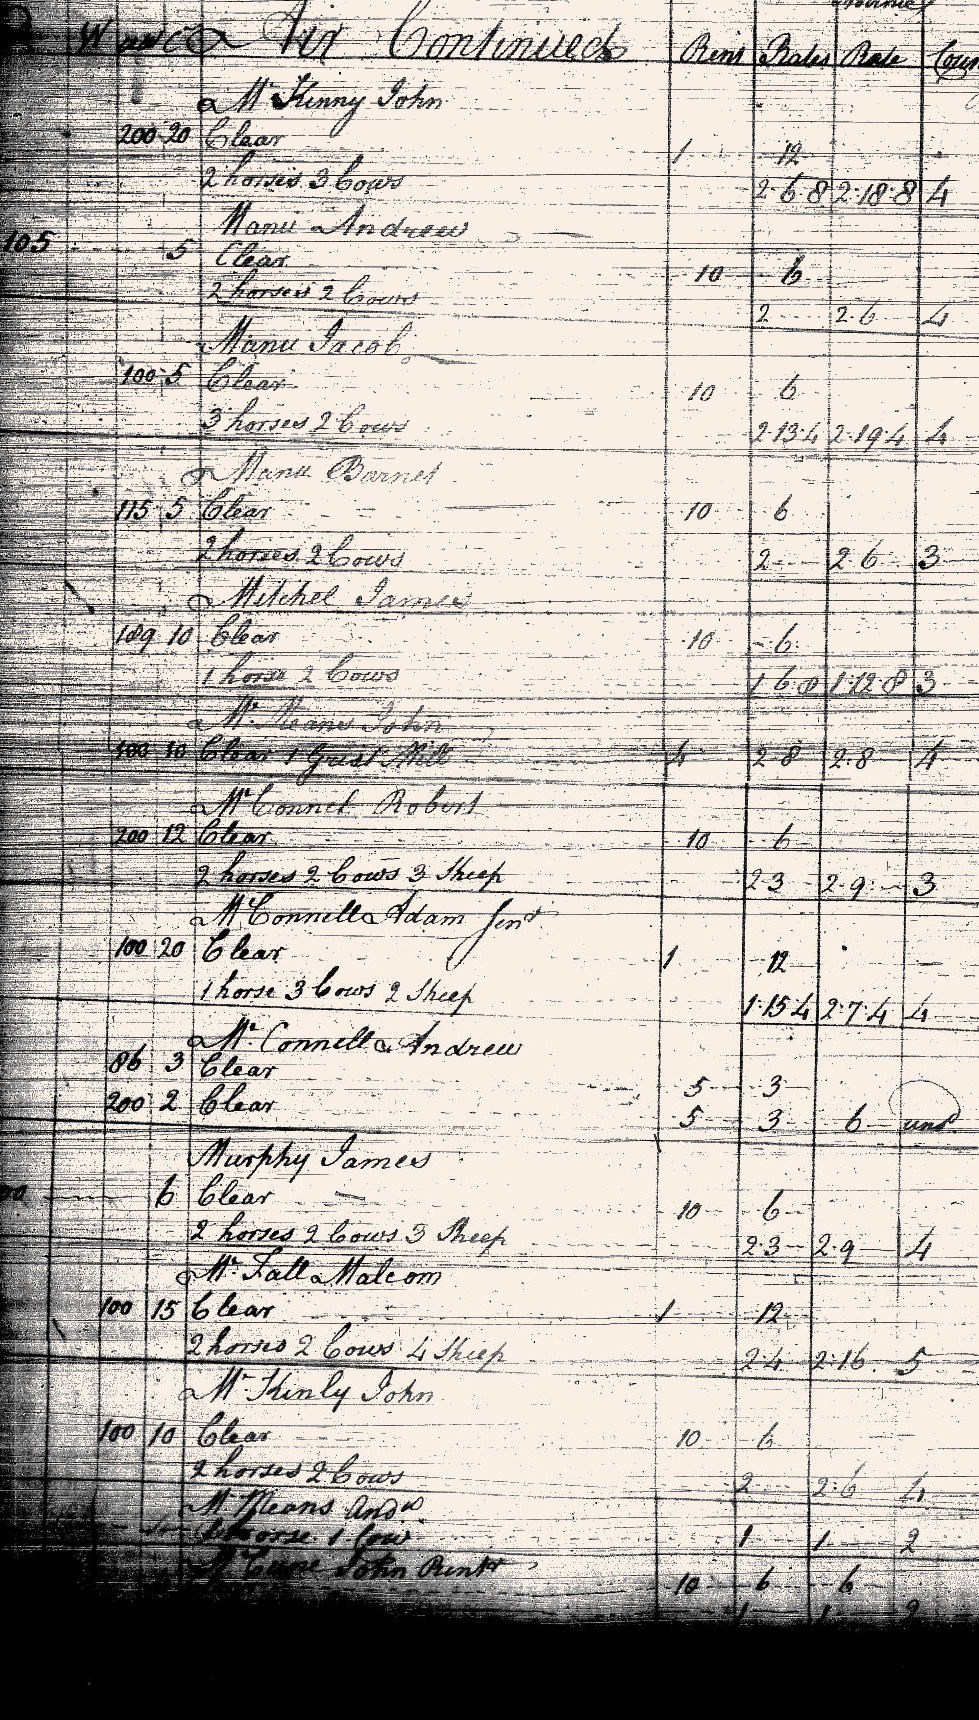 Air Continued Rent Rates Rate
McKinny John
200 20 Clear 1 12
2 horses 3 Cows 2 6 8 2 18 8 4
Manu Andrew
105 5 Clear 10 6
2 horses 2 Cows 2 2 6 4
Manu Jacob
100 5 Clear 10 6
3 horses 2 Cows 2 13 4 2 19 4 4
Manu Barnet
115 5 Clear 10 6
2 horses 2 Cows 2 2 6 3
Mitchel James
189 10 Clear 10 6
1 horse 2 Cows 1 6 8 1 12 8 3
Mc Means John
100 10 Clear 1 Grist Mill 4 2 8 2 8 4
McConnel Robert
200 12 Clear 10 6
2 horses 2 Cows 3 Sheep 2 3 2 9 3
McConnell Adam Senr
100 20 Clear 1 12
1 horse 3 Cows 2 Sheep 1 15 4 2 7 4 4
McConnell Andrew
86 3 Clear 5 3
200 2 Clear 5 3 6
Murphy James
6 Clear 10 6
2 horses 2 Cows 3 Sheep 2 3 2 9 4
McFall Malcom
100 15 Clear 1 12
2 horses 2 Cows 4 Sheep 2 4 2 16 5
McKinly John
100 10 Clear 10 6
2 horses 2 Cows 2 2 6 4
McMeans Andw
horse 1 Cow 1 1 2
John Rentr 10 6 6